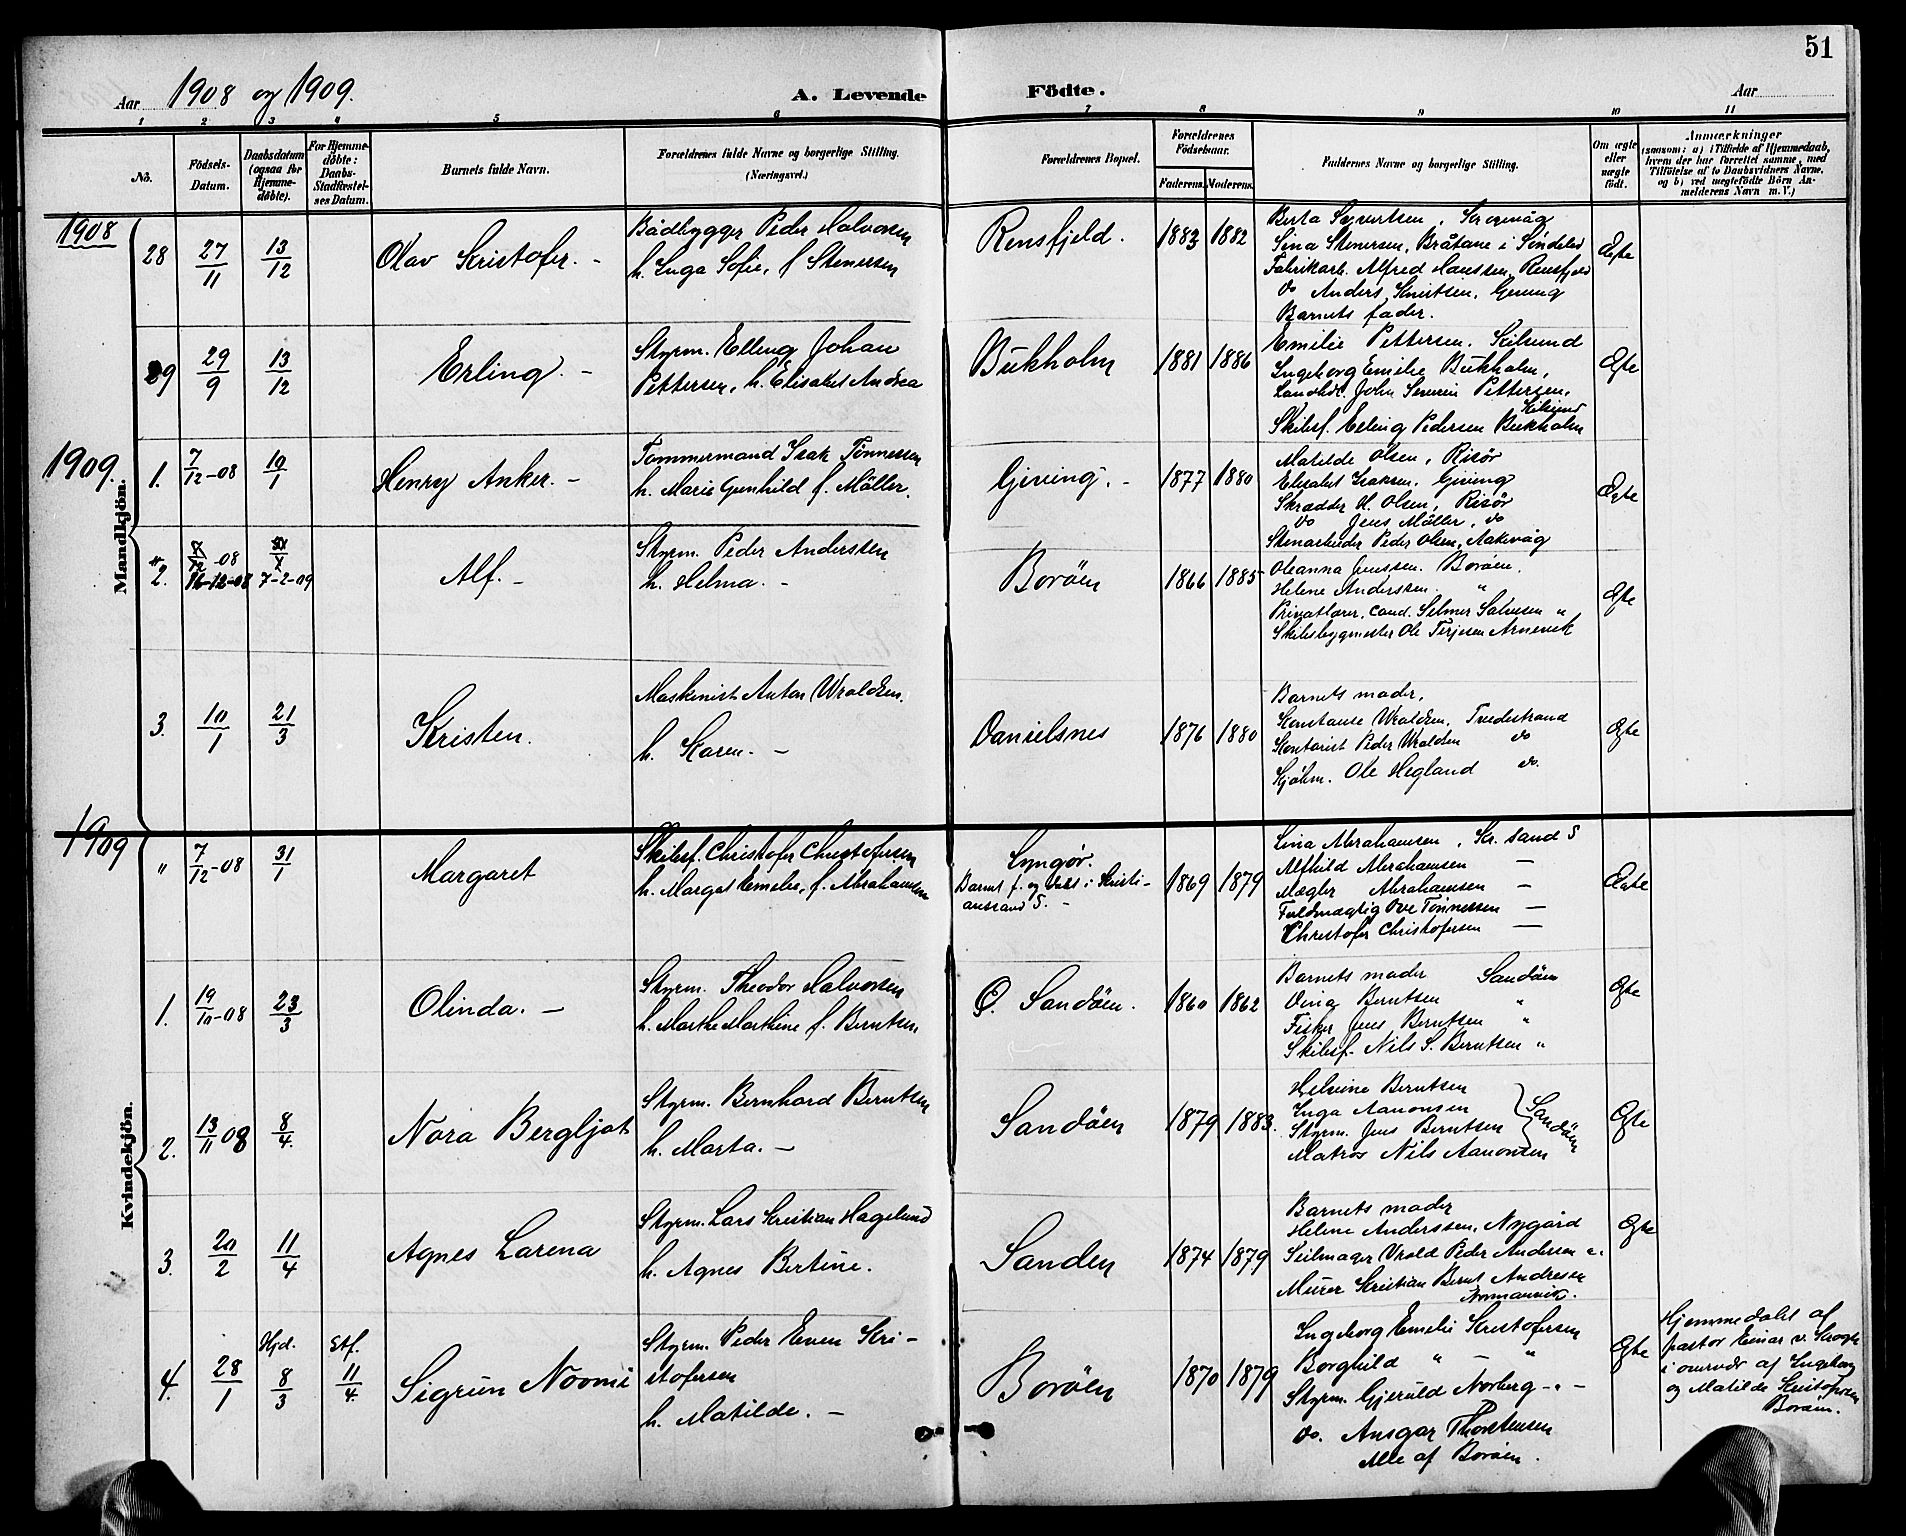 51
Aar 1908 og 1909.
A. Levende Födte.
Aar
1 2 3 4 5 6 7 8 9 10 11
No.
Födsels-Datum.
Daabsdatum (ogsaa for Hjemme-döbte).
For Hjemme-döbte: Daabs-Stadfæstel-ses Datum.
Barnets fulde Navn.
Forældrenes fulde Navne og borgerlige Stilling.
(Næringsvei.)
Forældrenes Bopæl.
Forældrenes Födselsaar.
Faderens. Moderens.
Faddernes Navne og borgerlige Stilling.
Om ægte eller uægte födt.
Anmærkninger
(saasom: a) i Tilfælde af Hjemmedaab, hvem der har forrettet samme, med Tilföielse af to Daabsvidners Navne, og b) ved uægtefödte Börn Anmelderens Navn m. V.)
Mandkjön.
1908
28 27/11 13/12 Olav Kristofer. -
Bådbygger Peder Halvorsen
h. Inga Sofie, f. Stenersen
Rensfjeld. 1883 1882
Berta Syvertsen,
Lina Stenersen, Bråtane i Söndeled
Fabrikarb. Alfred Hanssen, Rensfjeld
do Anders Knutsen, Gjeving
Barnets fader.
Ægte
29 29/9 13/12 Erling. -
Styrm. Elling Johan
Pettersen, h. Elisabet Andrea
Bukholm 1881 1886
Emilie Pettersen. Kilsund
Ingeborg Emilie Bukholm,
Landhdl. John Severin Pettersen,
Kilsund
Skibsf. Elling Pedersen Bukholm
Ægte
1909.
1. 7/12-08 10/1 Henry Anker. -
Tømmermand Isak Tønnessen
h. Marie Gunhild f. Möller.
Gjeving. - 1877 1880
Matilde Olsen, Risör
Elisabet Isaksen. Gjeving
Skrædder H. Olsen, Risör
do Jens Möller, do
Stenarbeider Peder Olsen,
Ægte
2. 8/12-08 16-12-08 7-2-09 Alf. -
Styrm. Peder Anderssen
h. Helma. -
Boröen 1866 1885
Oleanna Jenssen. Boröen.
Helene Anderssen. "
Privatlærer, cand. Selmer Salvesen "
Skibsbygmester Ole Terjesen Arnevik
Ægte
3. 10/1 21/3 Kristen.
Maskinist Anton Wroldsen.
h. Karen. -
Danielsnes 1876 1880
Barnets moder,
Konstanse Wroldsen, Tvedestrand
Kontorist Peder Wroldsen do
Kjøbm. Ole Hegland do.
Ægte
Kvindekjön.
1909
" 7/12-08 31/1 Margaret
Skibsf. Christofer Christofersen
h. Margot Emelie, f. Abrahamsen
Lyngör.
Barnet f. og döbt i Kristi-
ansand S. -
1869 1879
Lina Abrahamsen, Kr. sand S
Alfhild Abrahamsen —
Mægler Abrahamsen —
Fuldmægtig Ove Tönnessen —
Christofer Christofersen —
Ægte
1. 19/10-08 23/3 Olinda. -
Styrm. Theodor Halvorsen
h. Marthe Marthine f. Berntsen
Ö. Sandöen. 1860 1862
Barnets moder Sandöen
Berntsen "
Fisker Jens Berntsen "
Skibsf. Nils S. Berntsen "
Ægte
2. 13/11 08 8/4. Nora Bergljot
Styrm. Bernhard Berntsen
h. Marta. -
Sandöen 1879 1883.
Helvine Berntsen
Inga Aanonsen
Styrm. Jens Berntsen
Matros Nils Aanonsen
Sandöen
Ægte
3. 20/2 11/4 Agnes Larena
Styrm. Lars Kristian Hagelund
h. Agnes Bertine.
Sanden 1874 1879
Barnets moder
Helene Anderssen, Nygård
Seilmager Vrold Peder Andersen
Murer Kristian Bernt Andresen
Normansvik.
Ægte
4. 28/1 Hjd. 8/3 Stf. 11/4. Sigrun Noomi
Styrm. Peder Even Kri-
stofersen
h. Matilde. -
Boröen 1870 1879
Ingeborg Emelie Kristofersen
Borghild " - "
Styrm. Gjeruld Norberg - " -
do. Ansgar Thorstensen
Alle af Boröen.
Ægte
Hjemmedøbt af
pastor Einar v. Krogh
i overvær af Ingeborg
og Matilde Kristofersen
Boröen.